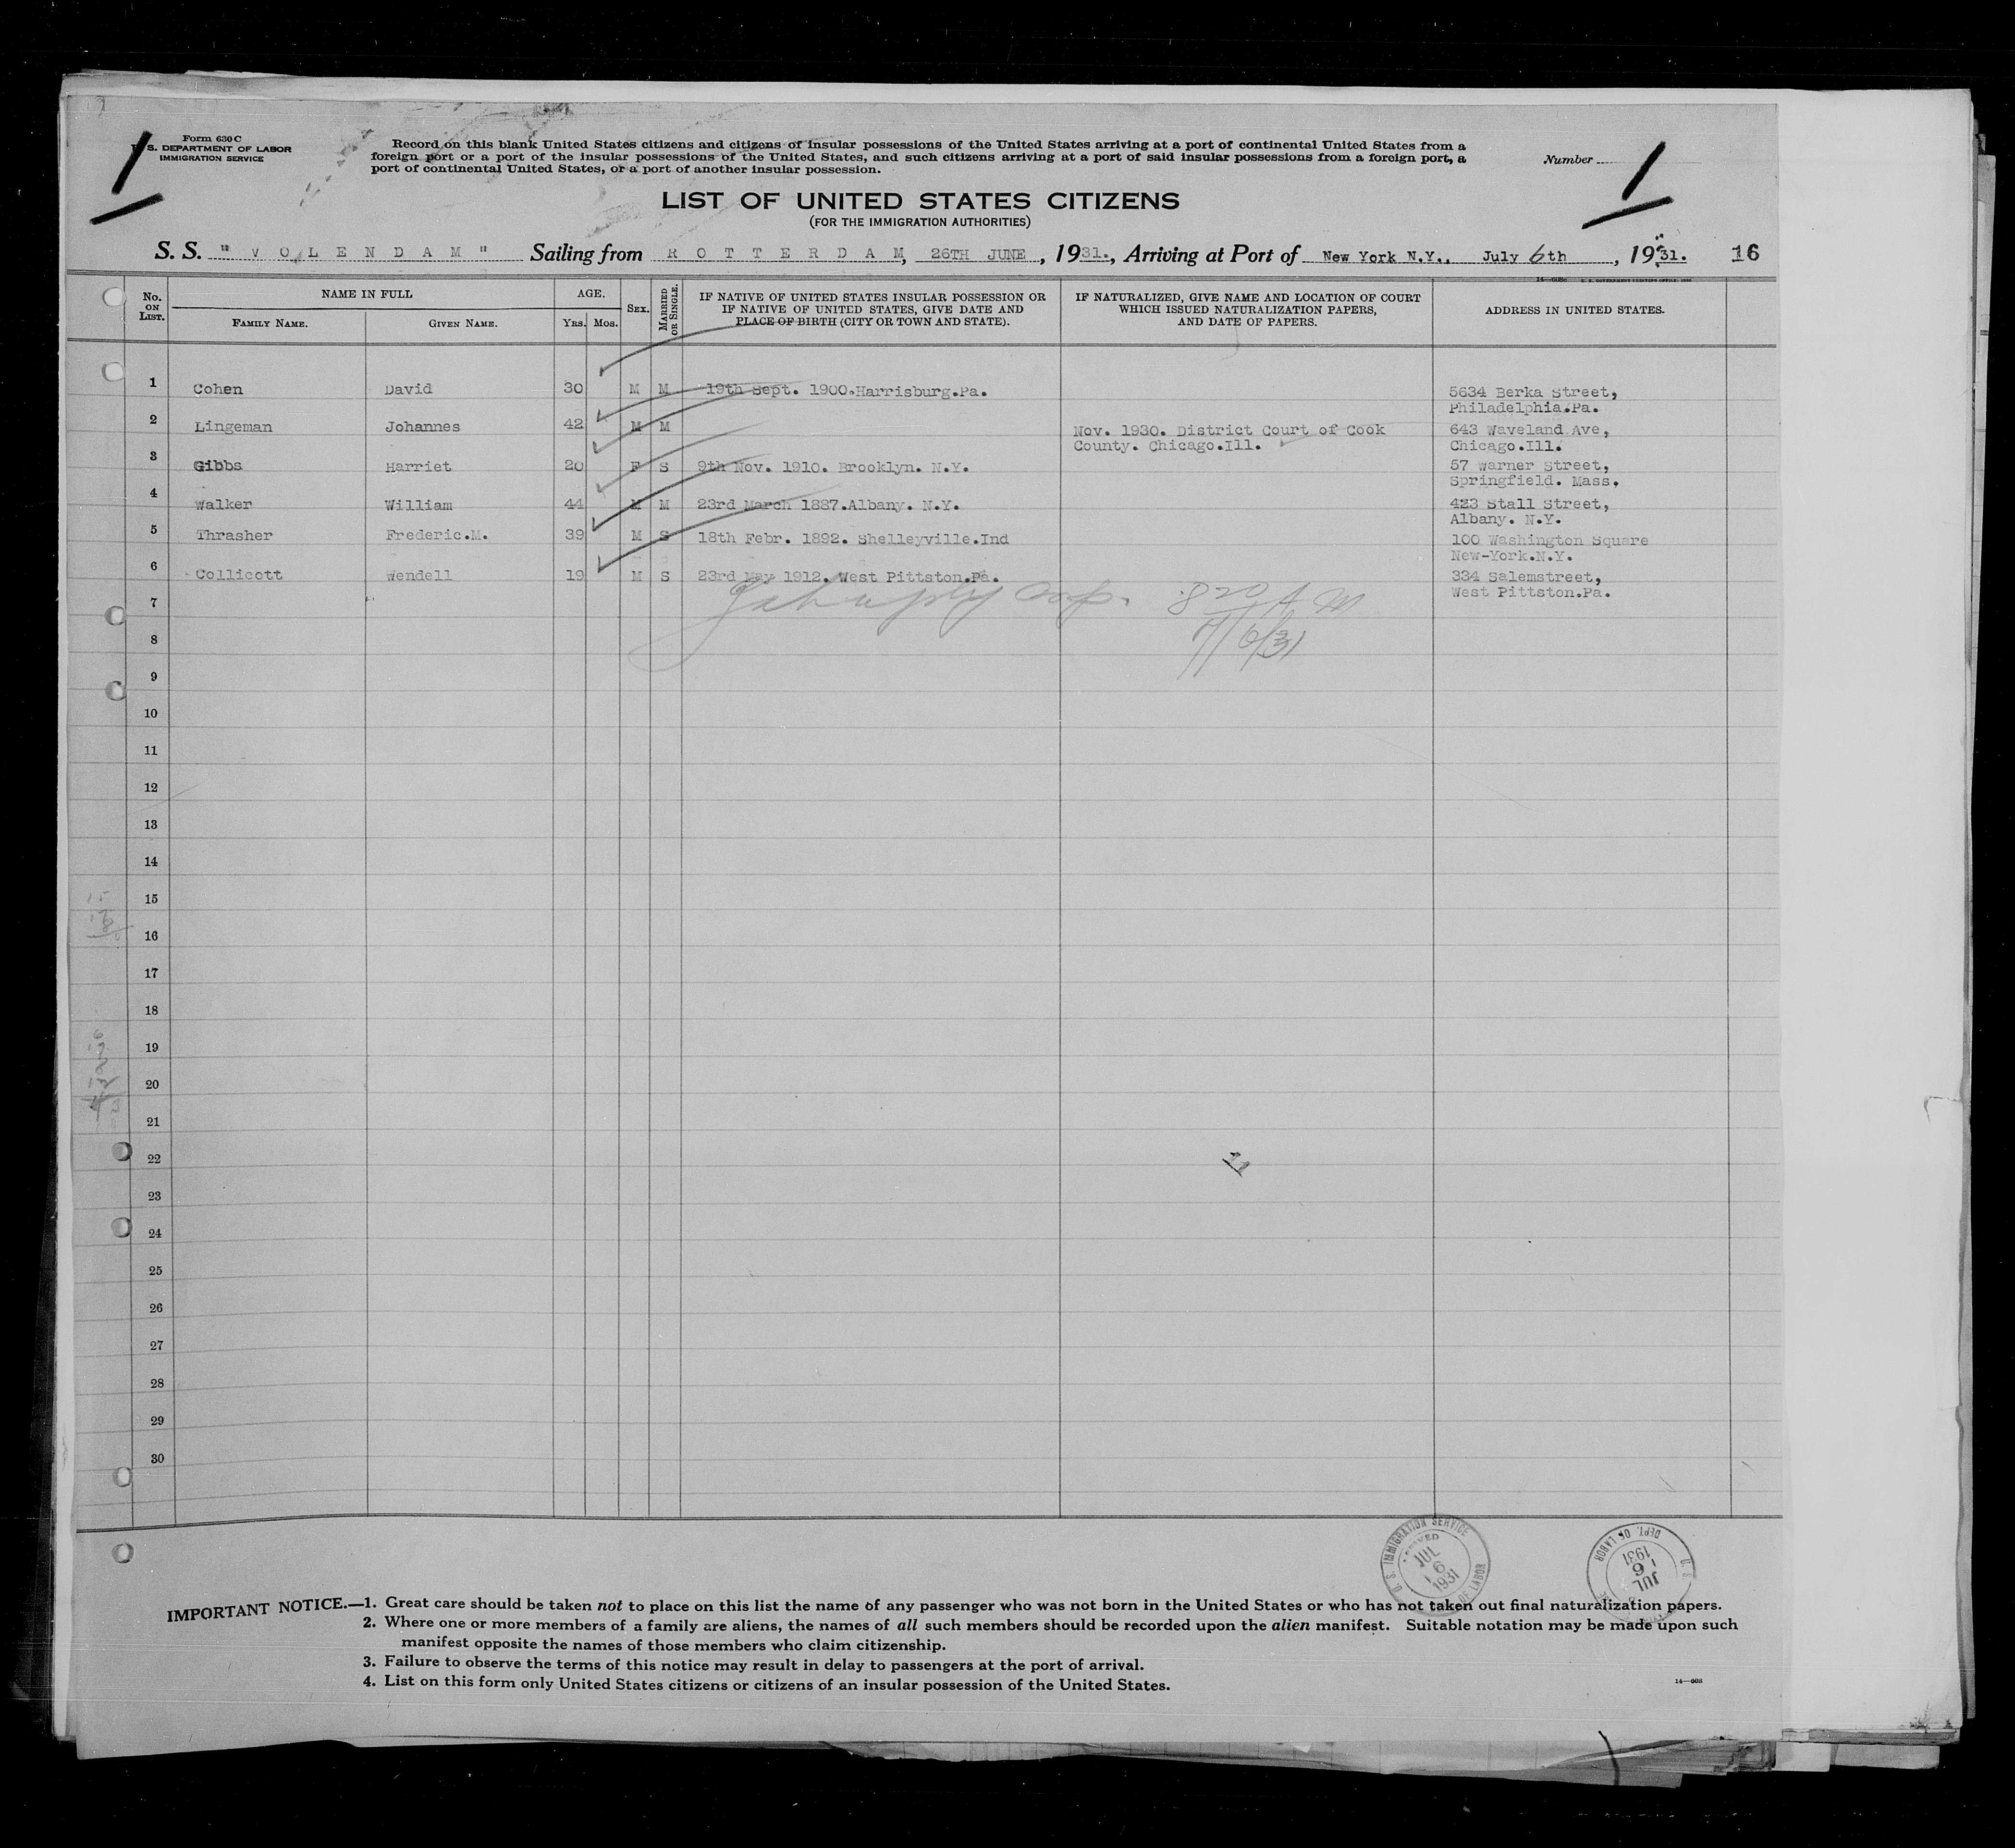 Form 630 C
S. DEPARTMENT OF LABOR
IMMIGRATION SERVICE
1
Record on this blank United States citizens and citizens of insular possessions of the United States arriving at a port of continental United States from a
foreign port or a port of the insular possessions of the United States, and such citizens arriving at a port of said insular possessions from a foreign port, a
port of continental United States, or a port of another insular possession.
Number
1
LIST OF UNITED STATES CITIZENS
(FOR THE IMMIGRATION AUTHORITIES)
S. S. "VOLENDAM" Sailing from ROTTERDAM, 26TH JUNE, 1931., Arriving at Port of New York N.Y., July 6th, 1931. 16
No. ON LIST.
NAME IN FULL
FAMILY NAME.
GIVEN NAME.
AGE.
YRS. MOS.
SEX.
MARRIED OR SINGLE.
IF NATIVE OF UNITED STATES INSULAR POSSESSION OR
IF NATIVE OF UNITED STATES, GIVE DATE AND
PLACE OF BIRTH (CITY OR TOWN AND STATE).
IF NATURALIZED, GIVE NAME AND LOCATION OF COURT
WHICH ISSUED NATURALIZATION PAPERS,
AND DATE OF PAPERS.
ADDRESS IN UNITED STATES.
1 Cohen David 30 M M 19th Sept. 1900.Harrisburg.Pa. 5634 Berka Street,
Philadelphia.Pa.
2 Lingeman Johannes 42 M M Nov. 1930. District Court of Cook 643 Waveland Ave,
County. Chicago.Ill. Chicago.Ill.
3 Gibbs Harriet 20 F S 9th Nov. 1910. Brooklyn. N.Y. 57 Warner Street,
Springfield. Mass.
4 Walker William 44 M M 23rd March 1887.Albany. N.Y. 423 Stall Street,
Albany. N.Y.
5 Thrasher Frederic.M. 39 M S 18th Febr. 1892. Shelleyville.Ind 100 Washington Square
New-York.N.Y.
6 Collicott Wendell 19 M S 23rd May 1912. West Pittston.Pa. 334 Salemstreet,
West Pittston.Pa.
7
8 20 A M
7/6/31
8
9
10
11
12
13
14
15
16
17
18
19
20
21
22
23
24
25
26
27
28
29
30
U. S. IMMIGRATION SERVICE
JUL 6 1931
OF LABOR
U. S.
DEPT. OF LABOR
JUL 6 1931
IMPORTANT NOTICE.—1. Great care should be taken not to place on this list the name of any passenger who was not born in the United States or who has not taken out final naturalization papers.
2. Where one or more members of a family are aliens, the names of all such members should be recorded upon the alien manifest. Suitable notation may be made upon such
manifest opposite the names of those members who claim citizenship.
3. Failure to observe the terms of this notice may result in delay to passengers at the port of arrival.
4. List on this form only United States citizens or citizens of an insular possession of the United States.
14—608